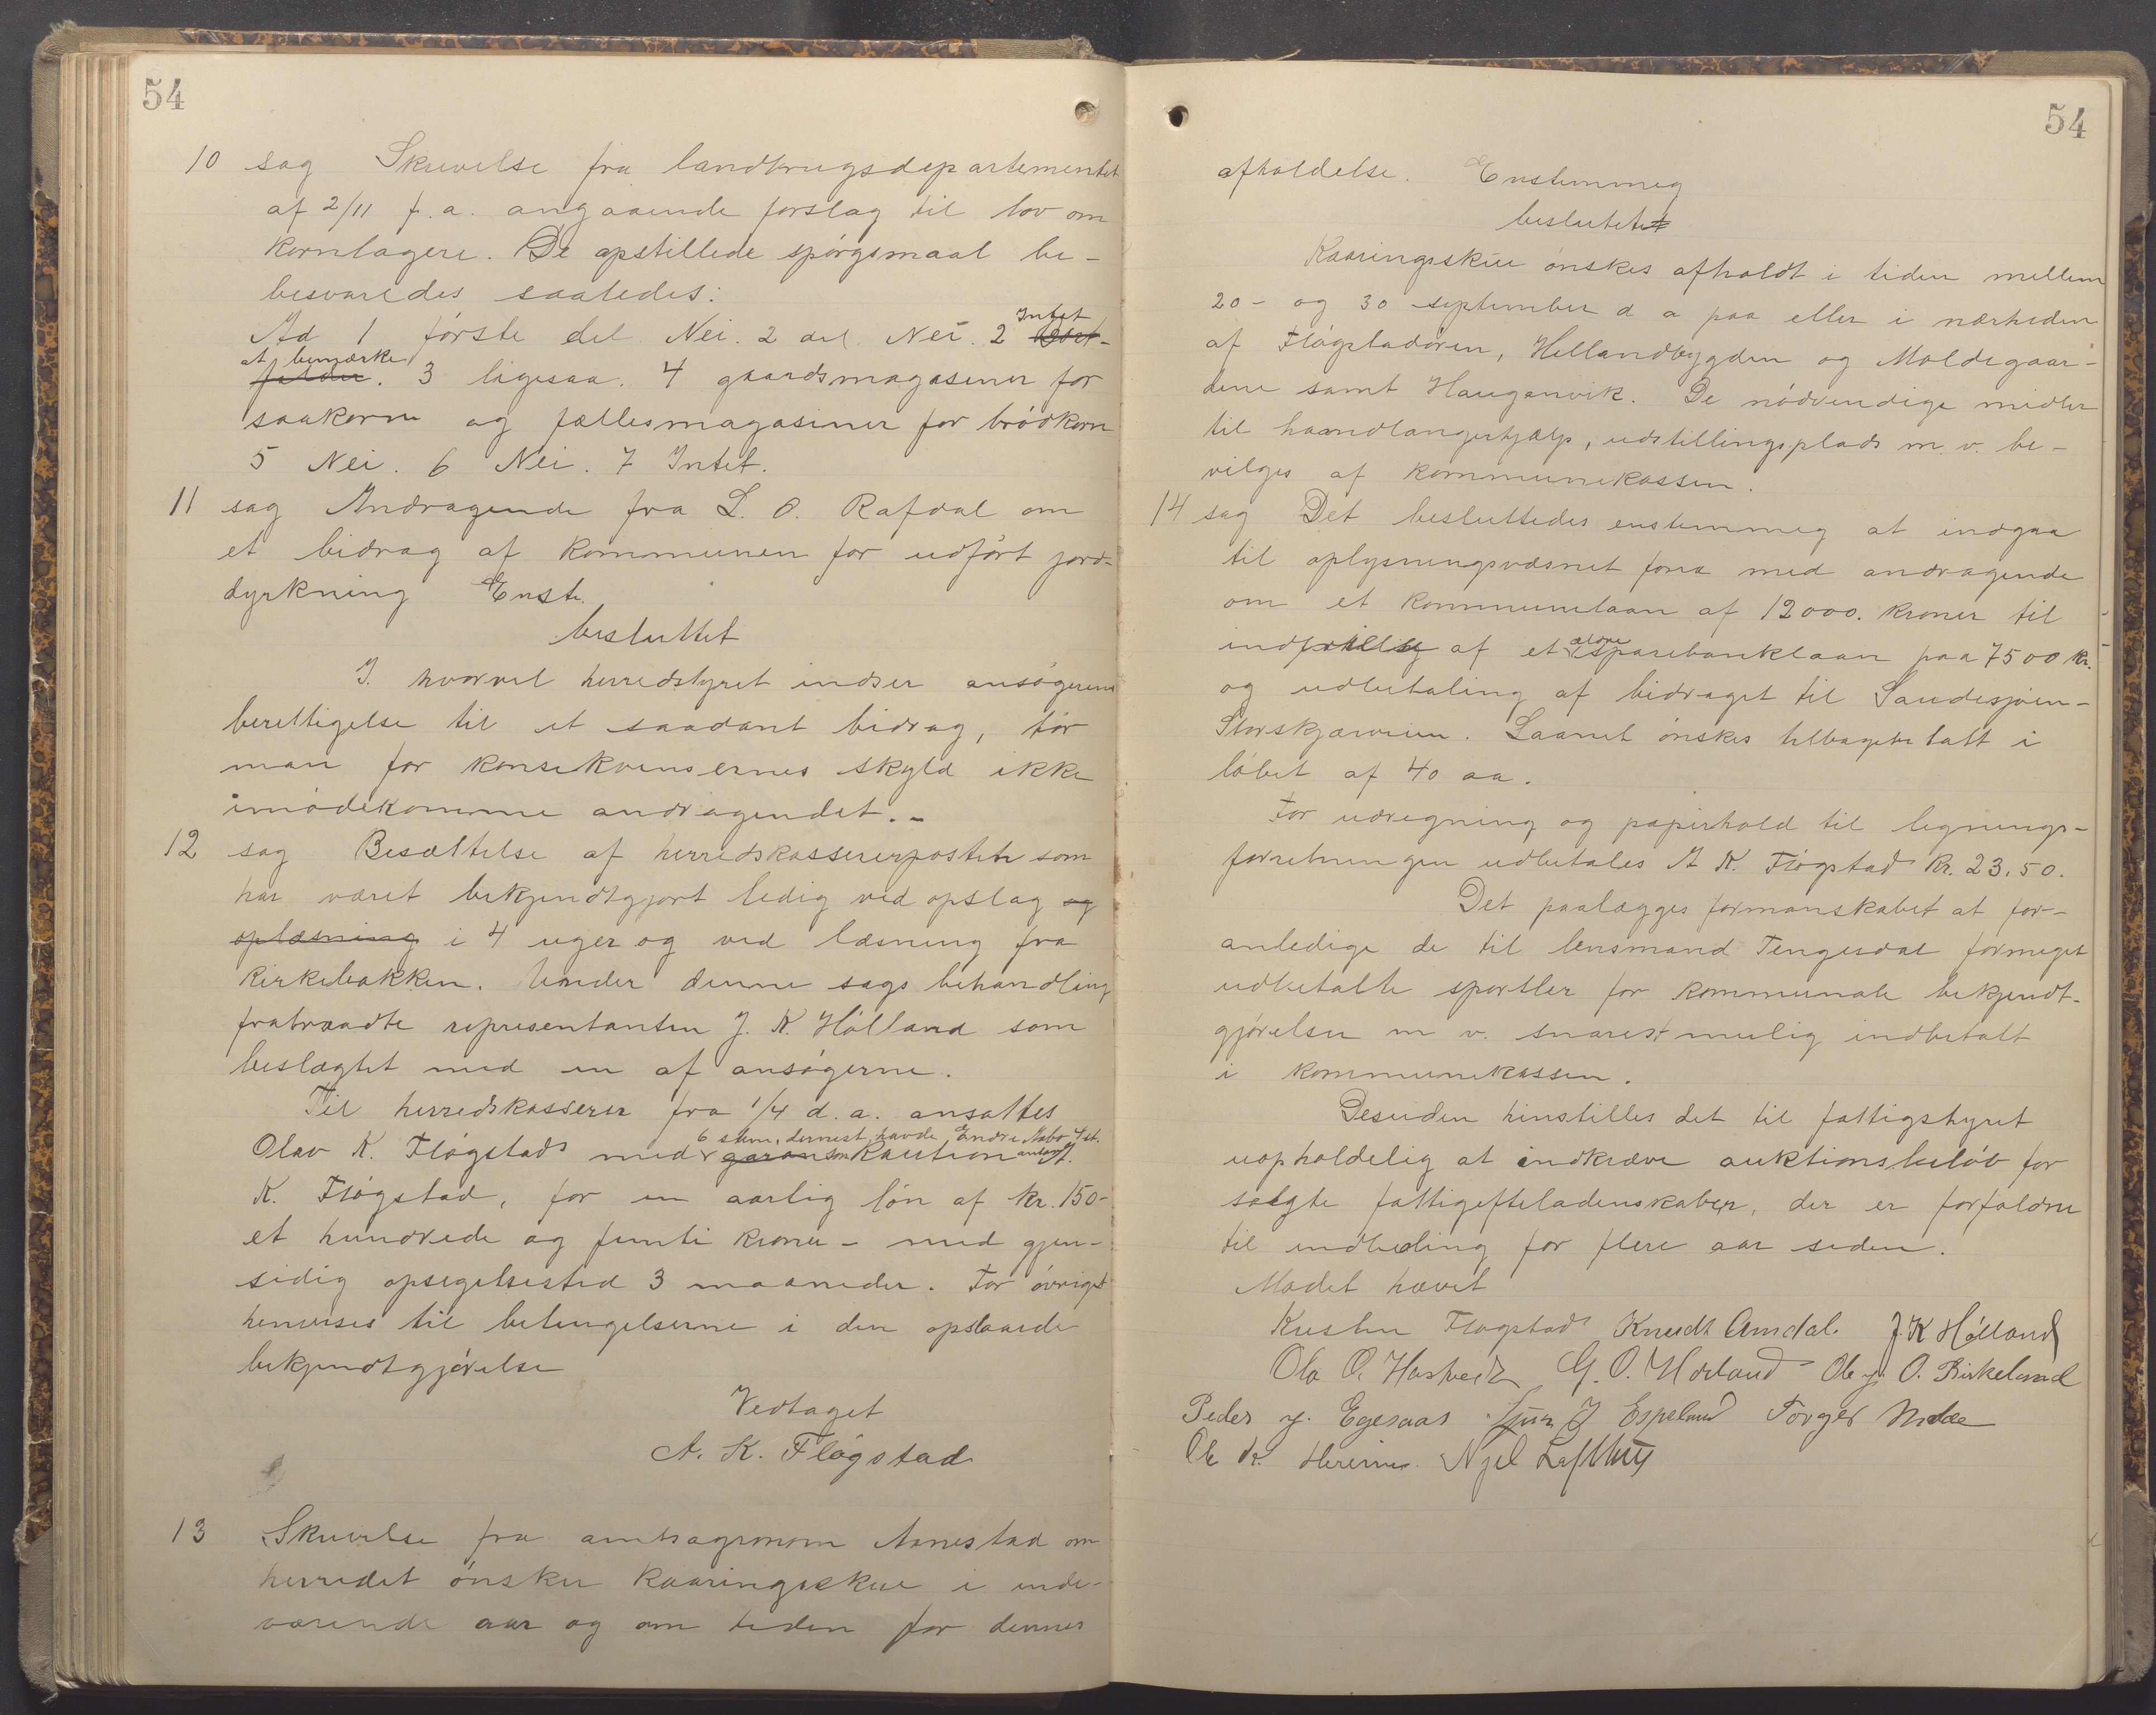 54
10 sag Skrivelse fra landbrugsdepartementet
af 2/11 f.a. angaaende forslag til lov om
kornlagere. De opstillede spörgsmaal be-
besvaredes saaledes:
Ad 1 förste del Nei. 2 del Nei. 2 Intet
at bemærke. 3 ligesaa. 4 gaardsmagasiner for
saakorn og fællesmagasiner for brödkorn
5 Nei. 6 Nei. 7 Intet.
11 sag Andragende fra L. O. Rafdal om
et bidrag af kommunen for udfört jord-
dyrkning Enst.
besluttet
I hvorvel herredstyret indser ansögerens
berettigelse til et saadant bidrag, tör
man for konsekvensernes skyld ikke
imödekomme andragendet.-
12 sag Besættelse af herredskassererposten som
har været bekjendtgjort ledig ved opslag og
oplæsning i 4 uger og ved læsning fra
kirkebakken. Under denne sags behandling
fratraadte representanten J. K. Hölland som
beslægtet med en af ansögerne.
Til herredskasserer fra 1/4 d.a. ansattes
6 stem, dernest havde Endre Nabo 4 st.
Olav K. Flögstad med kaution
K. Flögstad, for en aarlig lön af kr. 150-
et hundrede og femti kroner - med gjen-
sidig opsigelsestid 3 maaneder. For övrigt
henvises til betingelserne i den opslaaede
bekjendtgjörelse
Vedtaget
A. K. Flögstad
13 Skrivelse fra amtsagronom Aanestad om
herredet önsker kaaringsskue i inde-
værende aar og om tiden for dennes
54
afholdelse. Enstemmig
besluttet
Kaaringsskue önskes afholdt i tiden mellem
20- og 30 september d a paa eller i nærheden
af Flögstadören, Hellandbygden og Moldegaar-
dene samt Hauganvik. De nödvendige midler
til haandlangerhjælp, udstillingsplads m.v. be-
vilges af kommunekassen.
14 sag Det besluttedes enstemmig at indgaa
til oplysningsvæsnet fond med andragende
om et kommunelaan af 12000. kroner til
af et ældre sparebanklaan paa 7500 kr.
og udbetaling af bidraget til Saudesjöen-
Storskjærveien. Laanet önskes tilbagebetalt i
löbet af 40 aa.
For udregning og papirhold til legnings-
forretningen udbetales A K. Flögstad kr. 23.50.
Det paalægges formanskabet at for-
anledige de til lensmand Tengesdal formeget
udbetalte sportler for kommunale bekjendt-
gjörelser m v. snarest mulig indbetalt
i kommunekassen.
Desuden hinstilles det til fattigstyret
uopholdelig at indkræve auktionsbelöb for
solgte fattigefteladenskaber, der er forfaldne
til indbetaling for flere aar siden.
Mödet hævet
Kristen Flögstad Knudt Amdal. J. K Hölland
Ola O. Hastvedt G. O. Hovland Ole J. O. Birkeland
Peder J. Egesaas J Espeland Torger Molde
Ole K. Herheim Njel Lofthus